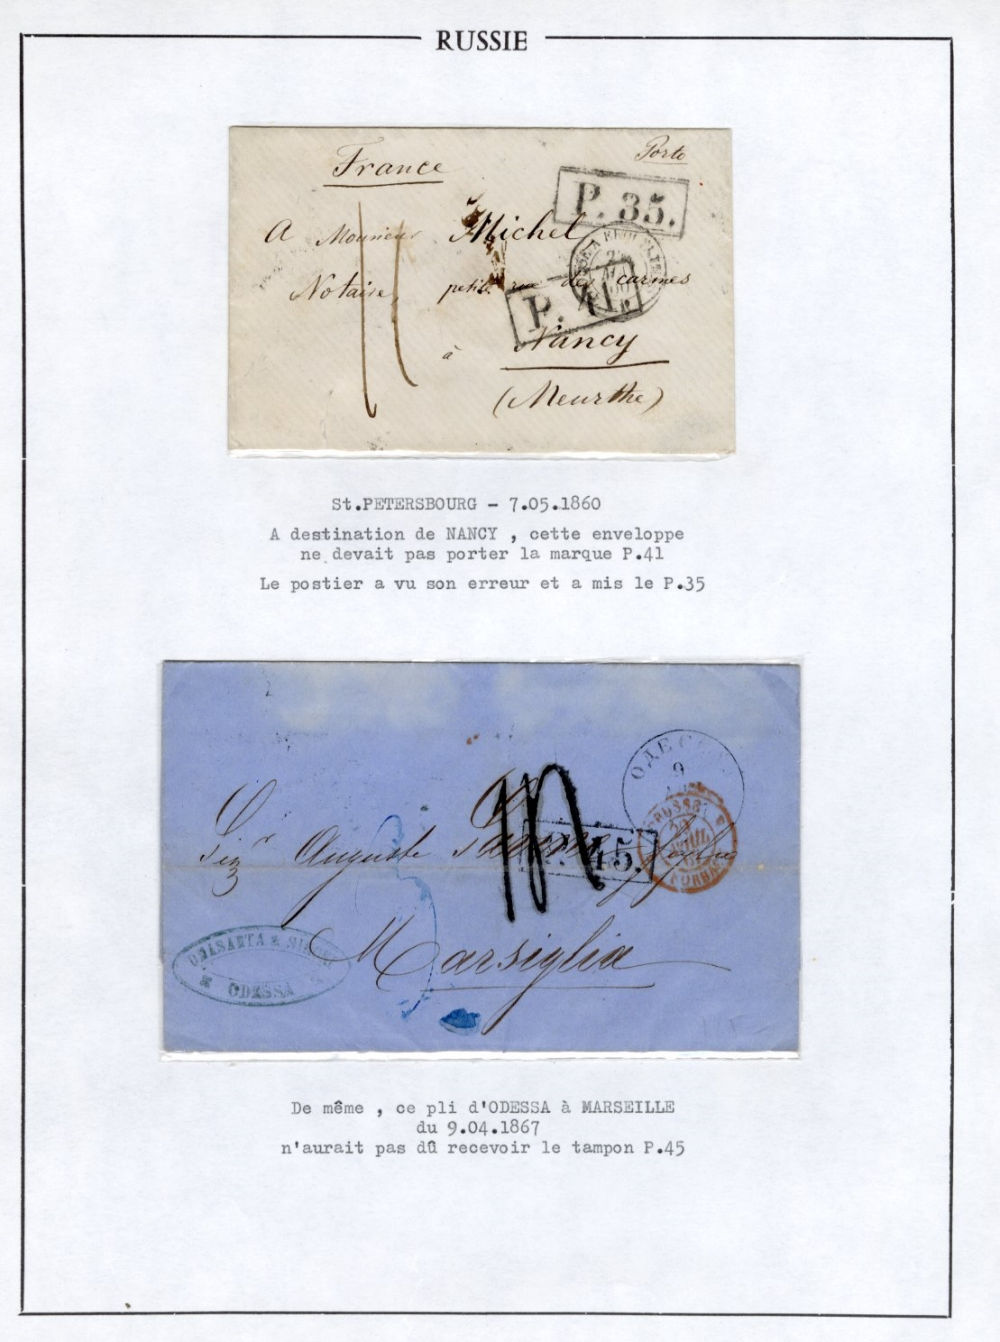 RUSSIE
France
Porto
P. 35.
A Monsieur Michel
Notaire, petite rue des carmes
P. 41.
à Nancy
(Meurthe)
St.PETERSBOURG - 7.05.1860
A destination de NANCY , cette enveloppe
ne devait pas porter la marque P.41
Le postier a vu son erreur et a mis le P.35
9
P. 45.
Auguste
FORBA
Marsiglia
ODESSA
De même , ce pli d'ODESSA à MARSEILLE
du 9.04.1867
n'aurait pas dû recevoir le tampon P.45